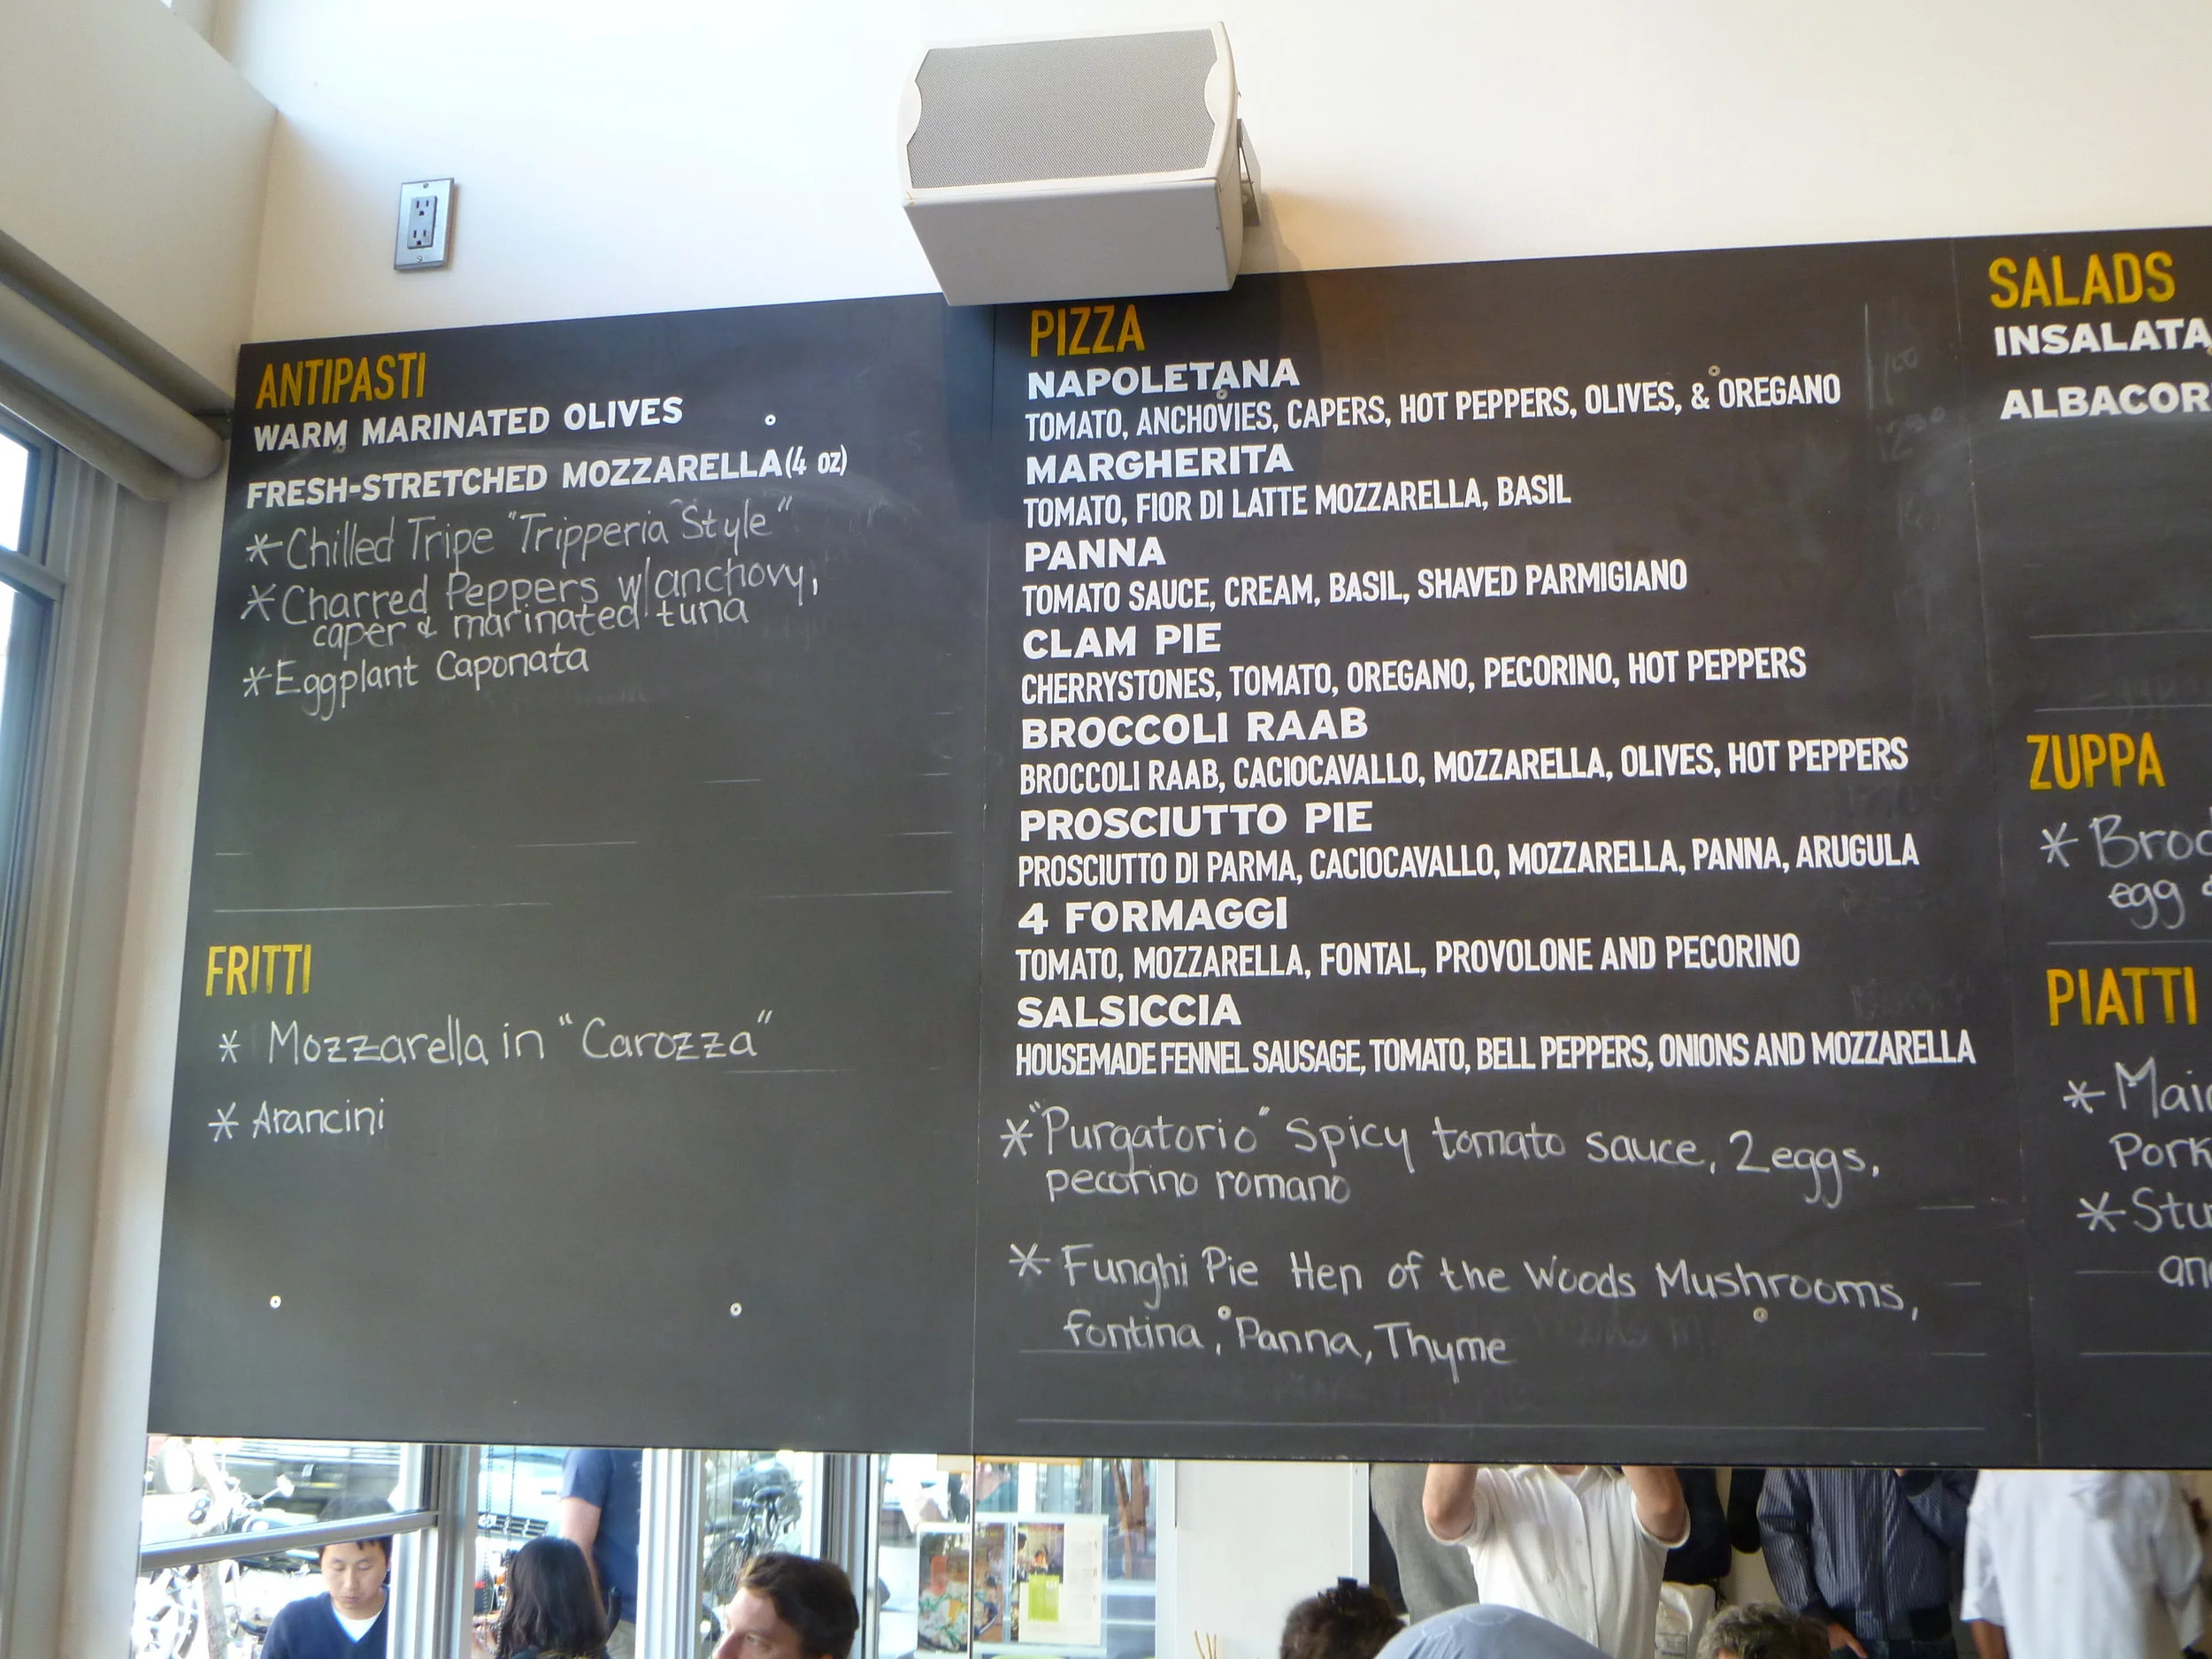 ANTIPASTI
WARM MARINATED OLIVES
FRESH-STRETCHED MOZZARELLA (4 OZ)
* Chilled Tripe "Tripperia Style"
* Charred Peppers w/ anchovy,
caper & marinated tuna
* Eggplant Caponata
FRITTI
* Mozzarella in "Carozza"
* Arancini
PIZZA
NAPOLETANA
TOMATO, ANCHOVIES, CAPERS, HOT PEPPERS, OLIVES, & OREGANO
MARGHERITA
TOMATO, FIOR DI LATTE MOZZARELLA, BASIL
PANNA
TOMATO SAUCE, CREAM, BASIL, SHAVED PARMIGIANO
CLAM PIE
CHERRYSTONES, TOMATO, OREGANO, PECORINO, HOT PEPPERS
BROCCOLI RAAB
BROCCOLI RAAB, CACIOCAVALLO, MOZZARELLA, OLIVES, HOT PEPPERS
PROSCIUTTO PIE
PROSCIUTTO DI PARMA, CACIOCAVALLO, MOZZARELLA, PANNA, ARUGULA
4 FORMAGGI
TOMATO, MOZZARELLA, FONTAL, PROVOLONE AND PECORINO
SALSICCIA
HOUSEMADE FENNEL SAUSAGE, TOMATO, BELL PEPPERS, ONIONS AND MOZZARELLA
* "Purgatorio" Spicy tomato sauce, 2 eggs,
pecorino romano
* Funghi Pie Hen of the Woods Mushrooms,
fontina, Panna, Thyme
SALADS
INSALATA
ALBACOR
ZUPPA
* Brod
egg &
PIATTI
* Mai
Pork
* Stu
an